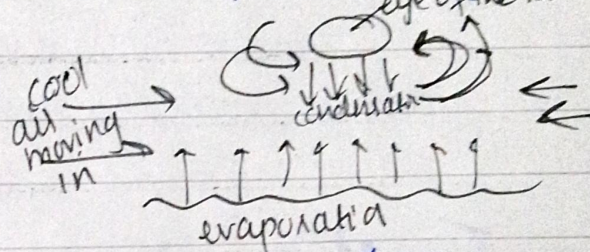 eye of the
cool
air
moving
in
condensati
evaporatio